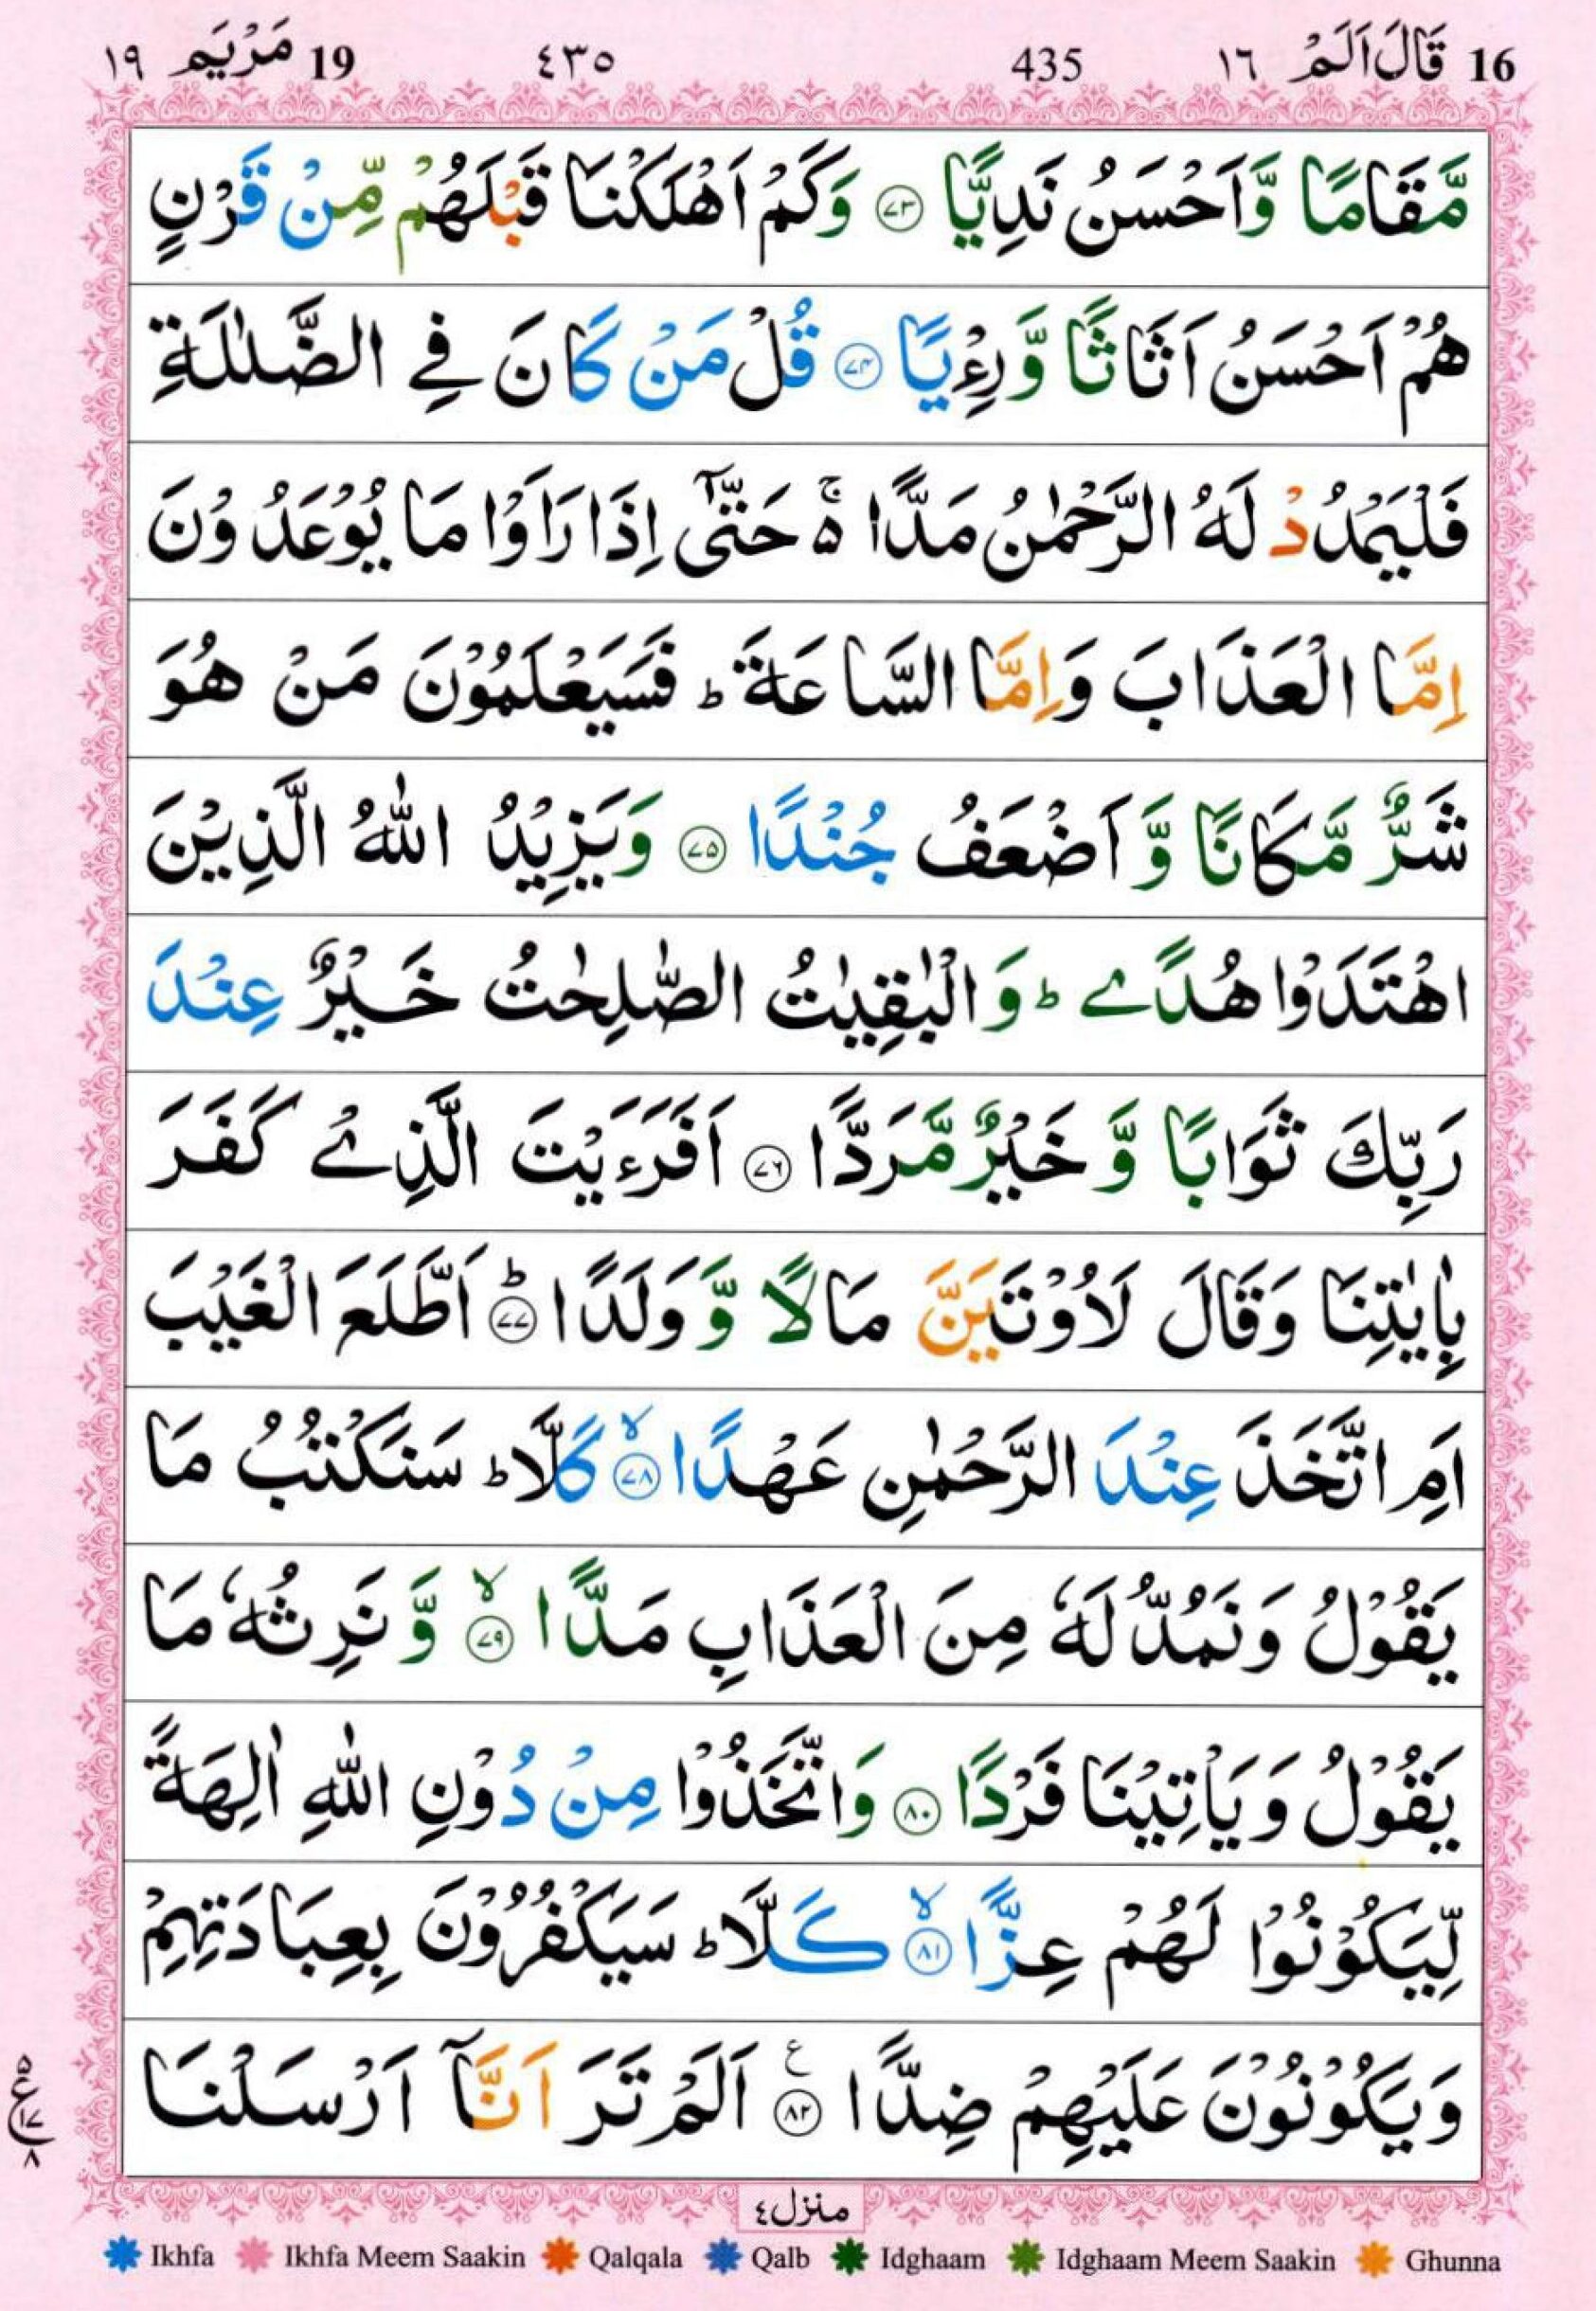 16 قَالَ اَلَمْ ١٦ 435 ٤٣٥ 19 مَرْيَم ١٩
مَّقَامًا وَّاَحْسَنُ نَدِيًّا ﴿۷۳﴾ وَكَمْ اَهْلَكْنَا قَبْلَهُمْ مِّنْ قَرْنٍ
هُمْ اَحْسَنُ اَثَاثًا وَّرِءْيًا ﴿۷۴﴾ قُلْ مَنْ كَانَ فِي الضَّلٰلَةِ
فَلْيَمْدُدْ لَهُ الرَّحْمٰنُ مَدًّا ۵ۚ حَتّٰٓى اِذَا رَاَوْا مَا يُوْعَدُوْنَ
اِمَّا الْعَذَابَ وَاِمَّا السَّاعَةَ ؕ فَسَيَعْلَمُوْنَ مَنْ هُوَ
شَرٌّ مَّكَانًا وَّاَضْعَفُ جُنْدًا ﴿۷۵﴾ وَيَزِيْدُ اللّٰهُ الَّذِيْنَ
اهْتَدَوْا هُدًى ؕ وَالْبٰقِيٰتُ الصّٰلِحٰتُ خَيْرٌ عِنْدَ
رَبِّكَ ثَوَابًا وَّخَيْرٌ مَّرَدًّا ﴿۷۶﴾ اَفَرَءَيْتَ الَّذِيْ كَفَرَ
بِاٰيٰتِنَا وَقَالَ لَاُوْتَيَنَّ مَالًا وَّوَلَدًا ﴿۷۷﴾ؕ اَطَّلَعَ الْغَيْبَ
اَمِ اتَّخَذَ عِنْدَ الرَّحْمٰنِ عَهْدًا ﴿۷۸﴾ۙ كَلَّا ؕ سَنَكْتُبُ مَا
يَقُوْلُ وَنَمُدُّ لَهٗ مِنَ الْعَذَابِ مَدًّا ﴿۷۹﴾ۙ وَّنَرِثُهٗ مَا
يَقُوْلُ وَيَاْتِيْنَا فَرْدًا ﴿۸۰﴾ وَاتَّخَذُوْا مِنْ دُوْنِ اللّٰهِ اٰلِهَةً
لِّيَكُوْنُوْا لَهُمْ عِزًّا ﴿۸۱﴾ۙ كَلَّا ؕ سَيَكْفُرُوْنَ بِعِبَادَتِهِمْ
وَيَكُوْنُوْنَ عَلَيْهِمْ ضِدًّا ﴿۸۲﴾ع اَلَمْ تَرَ اَنَّآ اَرْسَلْنَا
۵
ع
۱۷
۸
منزل٤
Ikhfa Ikhfa Meem Saakin Qalqala Qalb Idghaam Idghaam Meem Saakin Ghunna